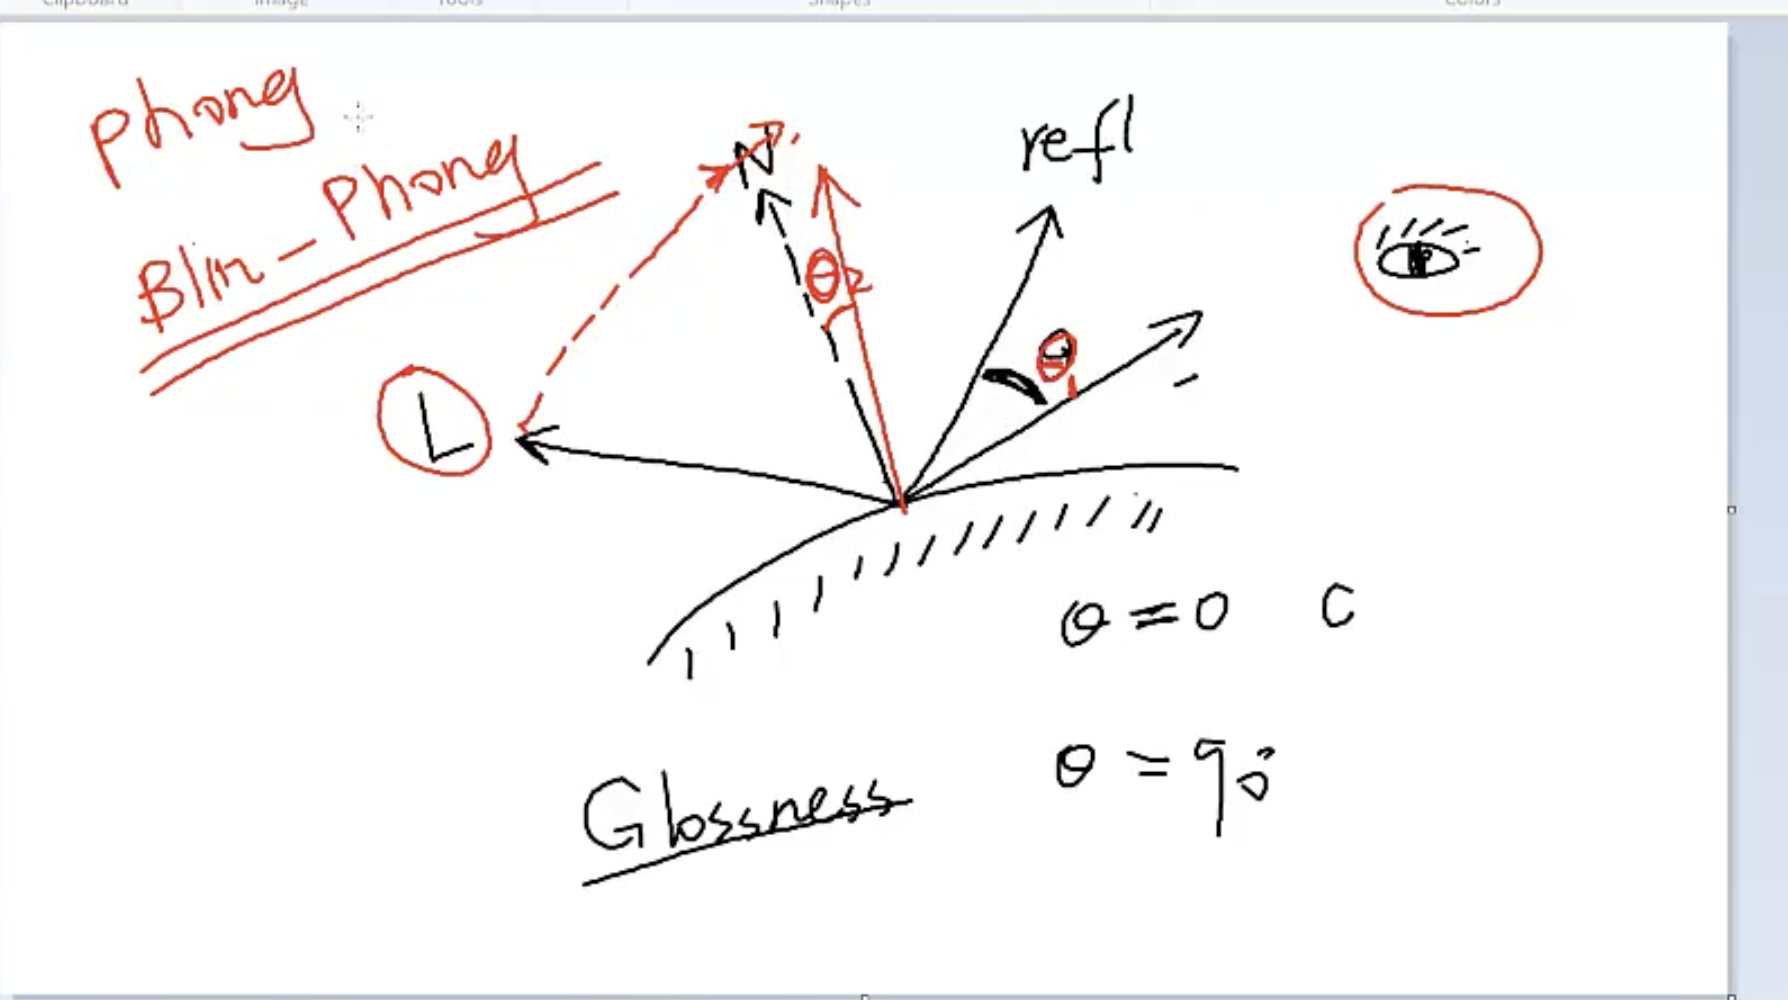 Clipboard Image Tools Shapes Colors
phong
Blin-Phong
N
refl
θ2
θ1
L
θ = 0 C
θ = 90°
Glossness